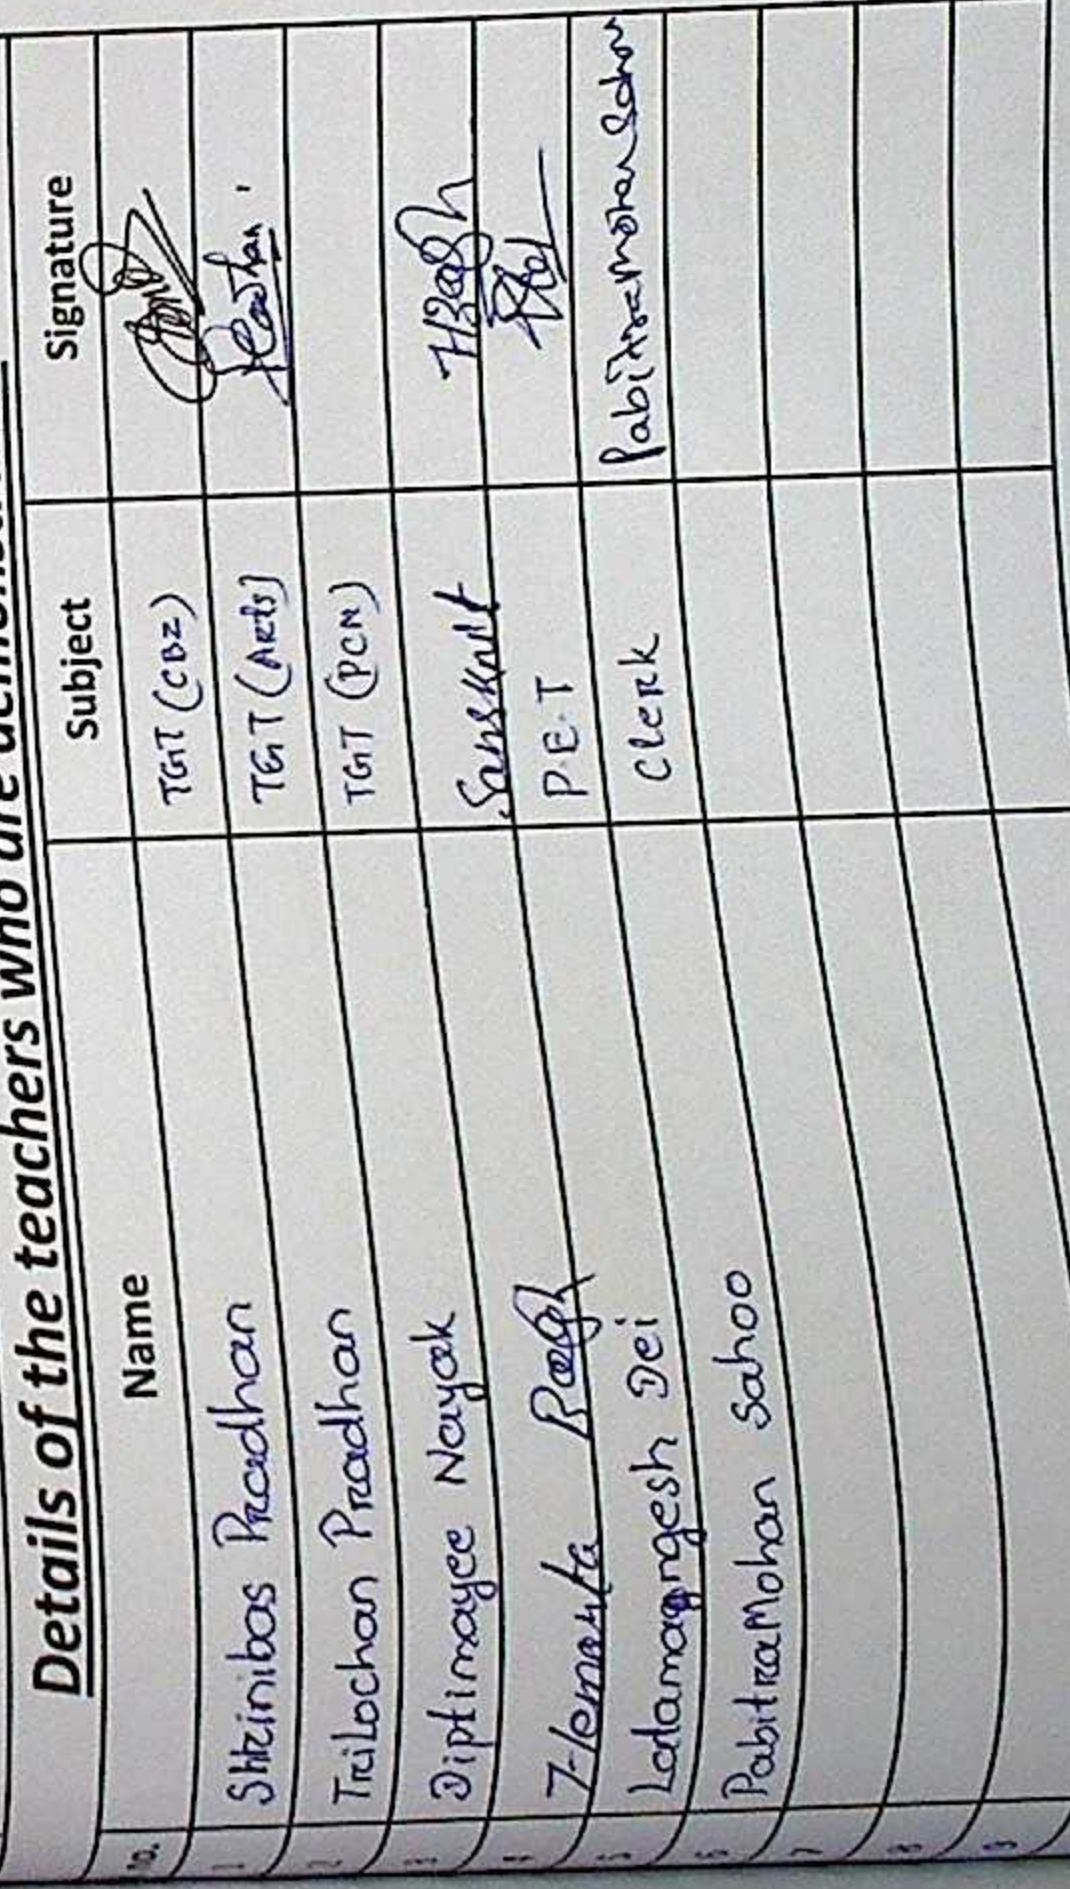 Details of the teachers who are
No. Name Subject Signature
1 Shrinibas Pradhan TGT (CBZ)
2 Trilochan Pradhan TGT (Arts) Pradhan
3 Diptimayee Nayak TGT (PCM)
4 Hemanta Bagh Sanskrit HBagh
5 Latamangesh Dei P.E.T
6 PabitraMohan Sahoo Clerk Pabitramohan Sahoo
7
8
9